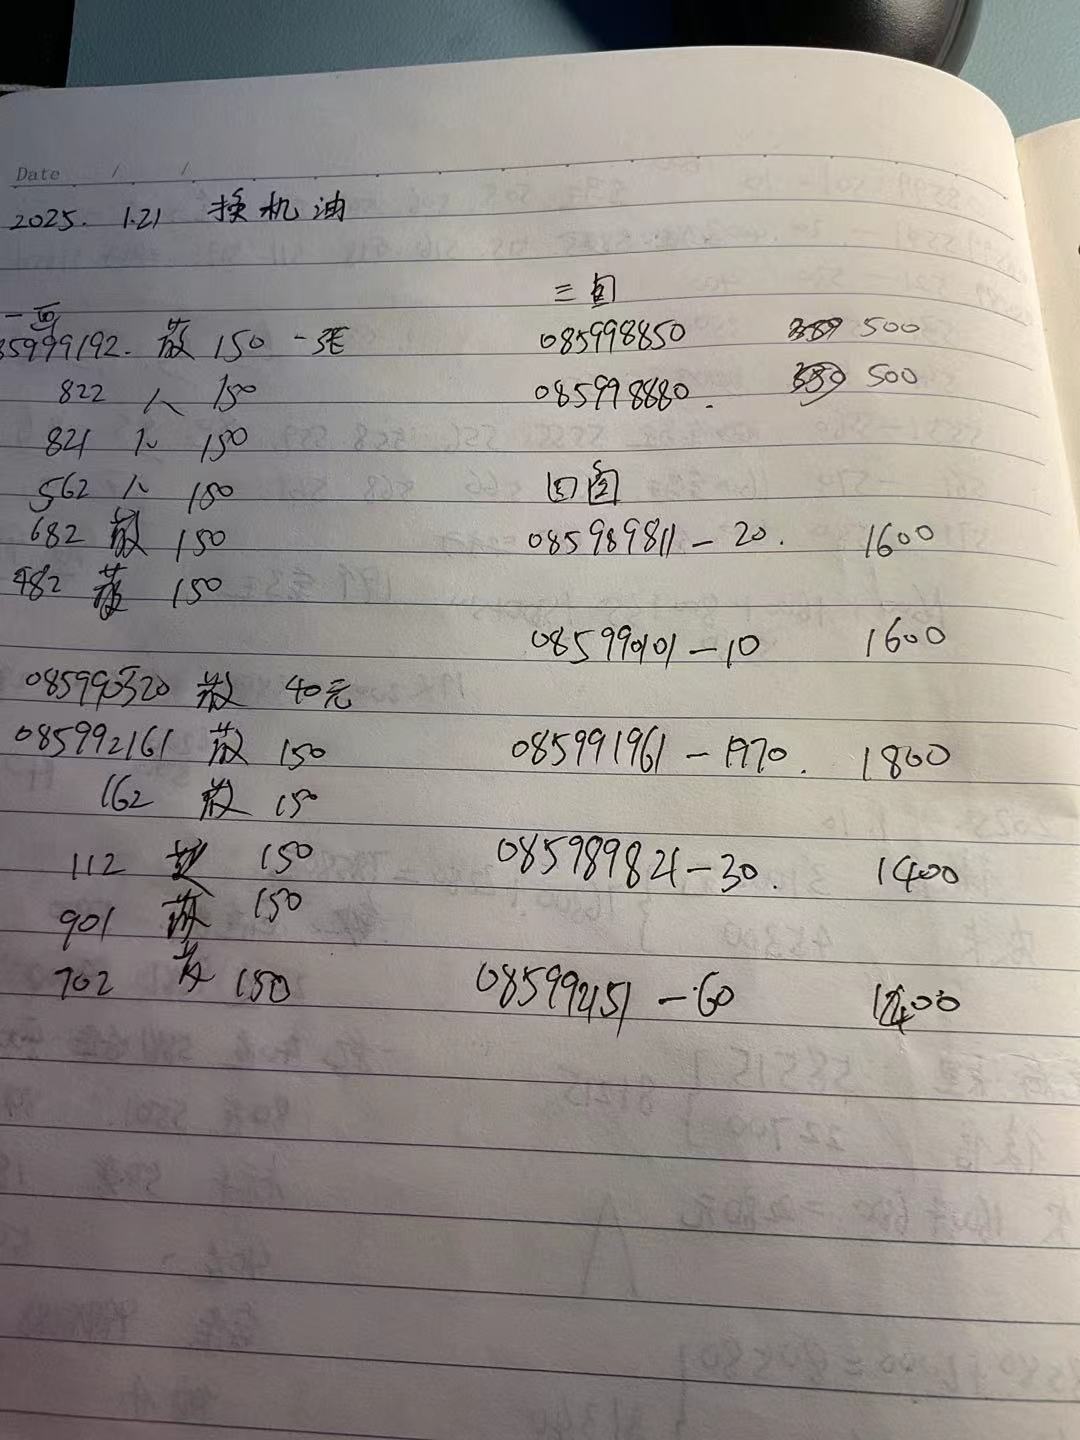 Date / /
2025. 1.21 换机油
一百
85999192. 散 150 一张
822 人 150
821 人 150
562 人 150
682 散 150
482 散 150
085990320 散 40元
085992161 散 150
162 散 150
112 散 150
901 散 150
702 散 150
三百
085998850 500
085998880. 500
四百
085989811-20. 1600
085990101-10 1600
085991961-1970. 1800
085989821-30. 1400
085992151-60 1400